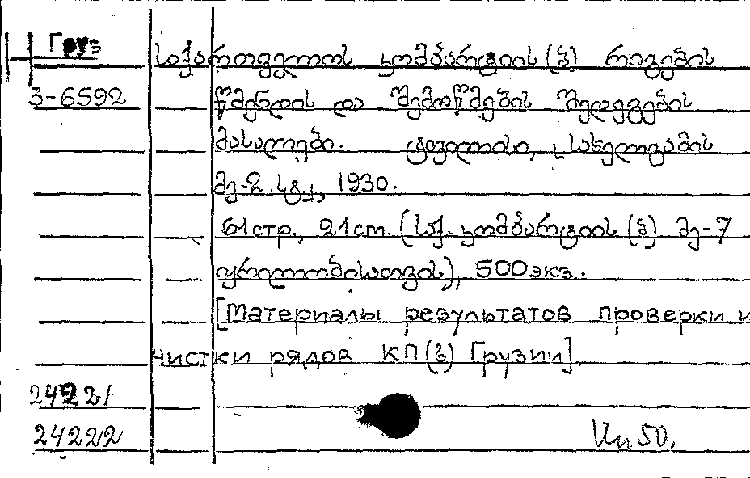 Груз
საქართველოს კომპარტიის (ბ) რიგების
3-6592 წმენდის და შემოწმების შედეგების
მასალები. ტფილისი, სახელგამის
მე-2 სტ., 1930.
61 стр., 21 cm. (საქ. კომპარტიის (ბ) მე-7
ყრილობისათვის), 500 экз.
[Материалы результатов проверки и
чистки рядов КП(б) Грузии]
24221
24222 50.